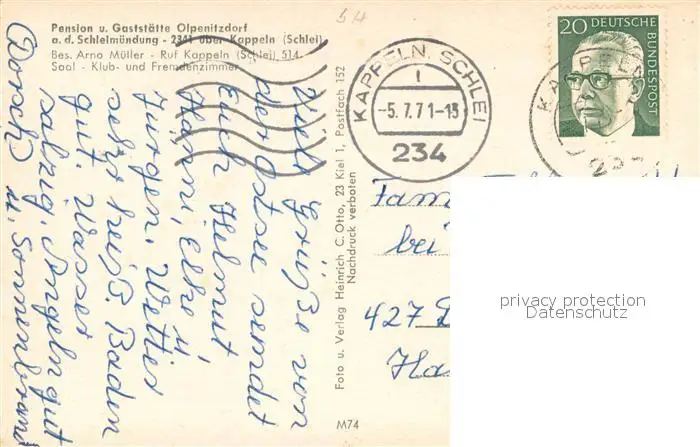 Pension u. Gaststätte Olpenitzdorf
a. d. Schleimündung - 2341 über Kappeln (Schlei)
Bes. Arno Müller - Ruf Kappeln (Schlei) 514
Saal - Klub- und Fremdenzimmer
54
KAPPELN, SCHLEI
1
-5.7.71-13
234
20 DEUTSCHE
BUNDESPOST
KAPPELN
Viele Grüße von
der Ostsee sendet
Euch Helmut
Hanni, Elke u.
Jürgen. Wetter
sehr heiß. Baden
gut. Wasser
salzig. Angeln gut
(Dorsch) u. Sonnenbrand
Foto u. Verlag Heinrich C. Otto, 23 Kiel 1, Postfach 152
Nachdruck verboten
M74
Fam
bei
427 D
Ha
privacy protection
Datenschutz